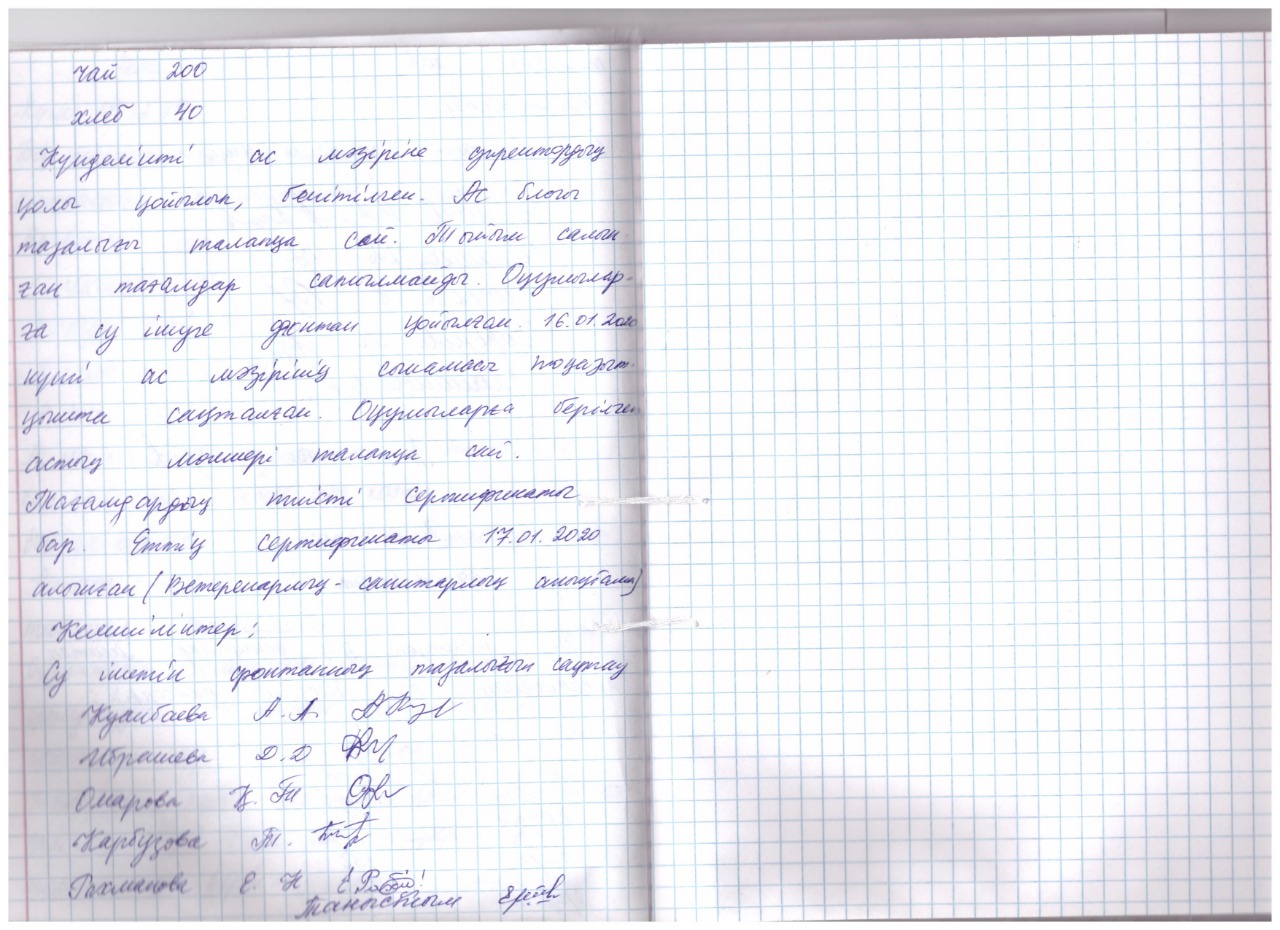 чай 200
хлеб 40
Күнделікті ас мәзіріне директордың
қолы қойылып, бекітілген. Ас блогы
тазалығы талапқа сай. Тыйым салын-
ған тағамдар сатылмайды. Оқушылар-
ға су ішуге фонтан қойылған. 16.01.2020
күнгі ас мәзірінің сынамасы тоңазыт-
қышта сақталған. Оқушыларға берілген
астың мөлшері талапқа сай.
Тағамдардың тиісті сертификаты
бар. Еттің сертификаты 17.01.2020
алынған (Ветеренарлық-санитарлық анықтама)
Кемшіліктер:
Су ішетін фонтанның тазалығын сақтау
Куанбаева А.А.
Ибрашева Д.Д
Омарова Қ. Т
Карбузова Т.
Рахманова Е. Н
Таныстым